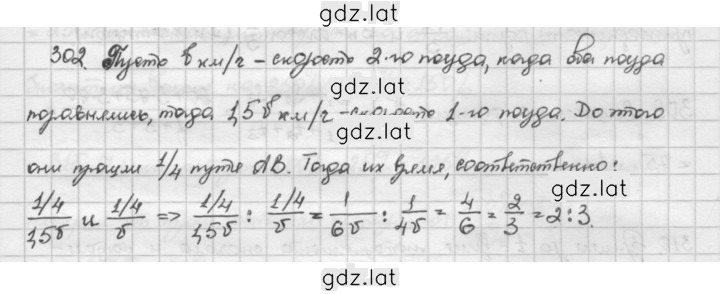 gdz.lat
302. Пусть v км/ч – скорость 2-го поезда, когда оба поезда
gdz.lat
поравнялись, тогда 1,5v км/ч – скорость 1-го поезда. До этого
gdz.lat
они прошли 1/4 пути AB. Тогда их время, соответственно:
gdz.lat
(1/4)/(1,5v) и (1/4)/v => (1/4)/(1,5v) : (1/4)/v = 1/(6v) : 1/(4v) = 4/6 = 2/3 = 2:3.
gdz.lat